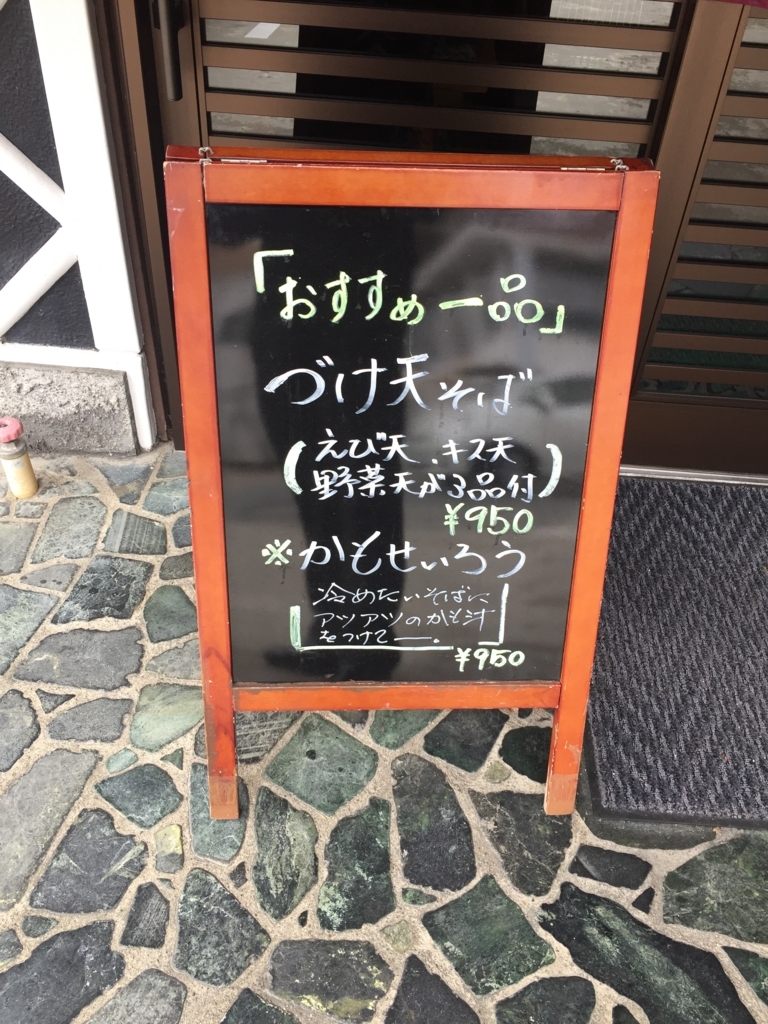 「おすすめ一品」
づけ天そば
(えび天、キス天
野菜天が3品付)
¥950
※かもせいろう
冷めたいそばに
アツアツのかも汁
をつけて―。
¥950